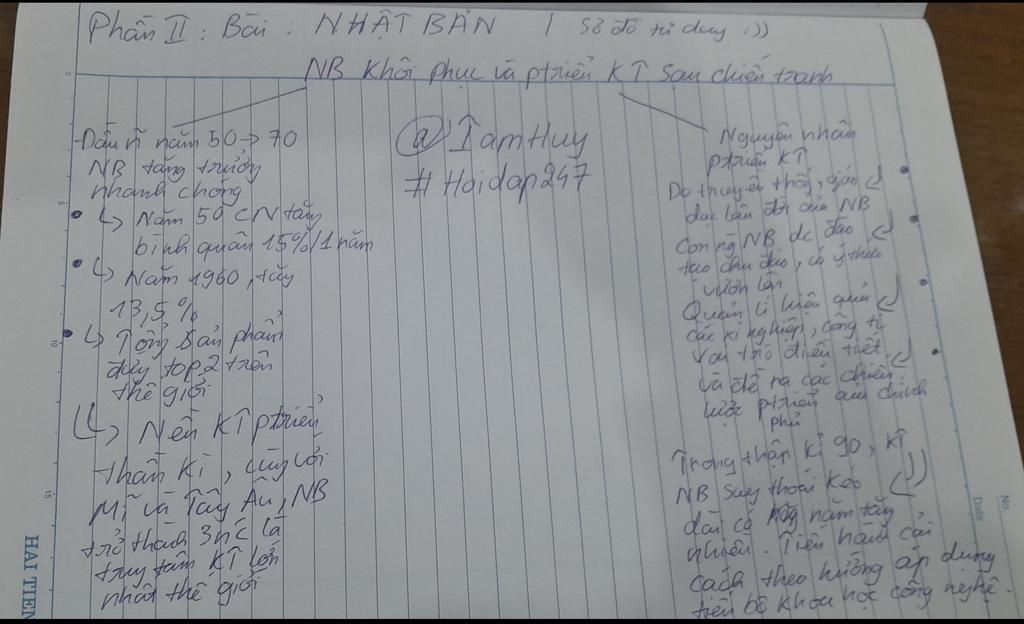 Phần II : Bài : NHẬT BẢN / Sơ đồ tư duy :))
NB khôi phục và ptriển KT sau chiến tranh
Đầu n~ năm 50 → 70
NB tăng trưởng
nhanh chóng
↳ Năm 50 CN tăng
bình quân 15%/1 năm
↳ Năm 1960, tăng
13,5%
↳ Tổng sản phẩm
đứng top 2 trên
thế giới
↳ Nền KT ptriển
thần kì, cùng với
Mĩ và Tây Âu, NB
trở thành 3 nc là
trung tâm KT lớn
nhất thế giới
@ IamHuy
#Hoidap247
Nguyên nhân
ptriển KT
Do truyền thống, giáo
dục lâu đời của NB
Con ng NB đc đào
tạo chu đáo, có ý thức
vươn lên
Quản lí hiệu quả
các xí nghiệp, công ti
Vai trò điều tiết
và đề ra các chiến
lược ptriển của chính
phủ
Trong thập kỉ 90, KT
NB suy thoái kéo
dài có năm tăng
Tiến hành cải
cách theo hướng áp dụng
tiến bộ khoa học công nghệ.
HAI TIEN
No
Date
5
10
15